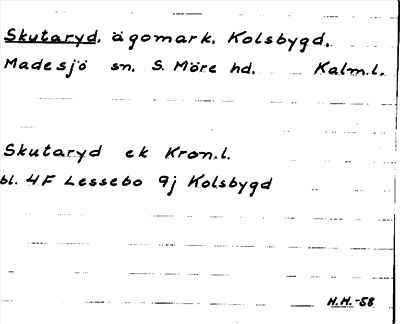 Skutaryd, ägomark. Kolsbygd.
Madesjö sn. S. Möre hd. Kalm.l.
Skutaryd ek Kron.l.
bl. 4F Lessebo 9j Kolsbygd
H.H.-58